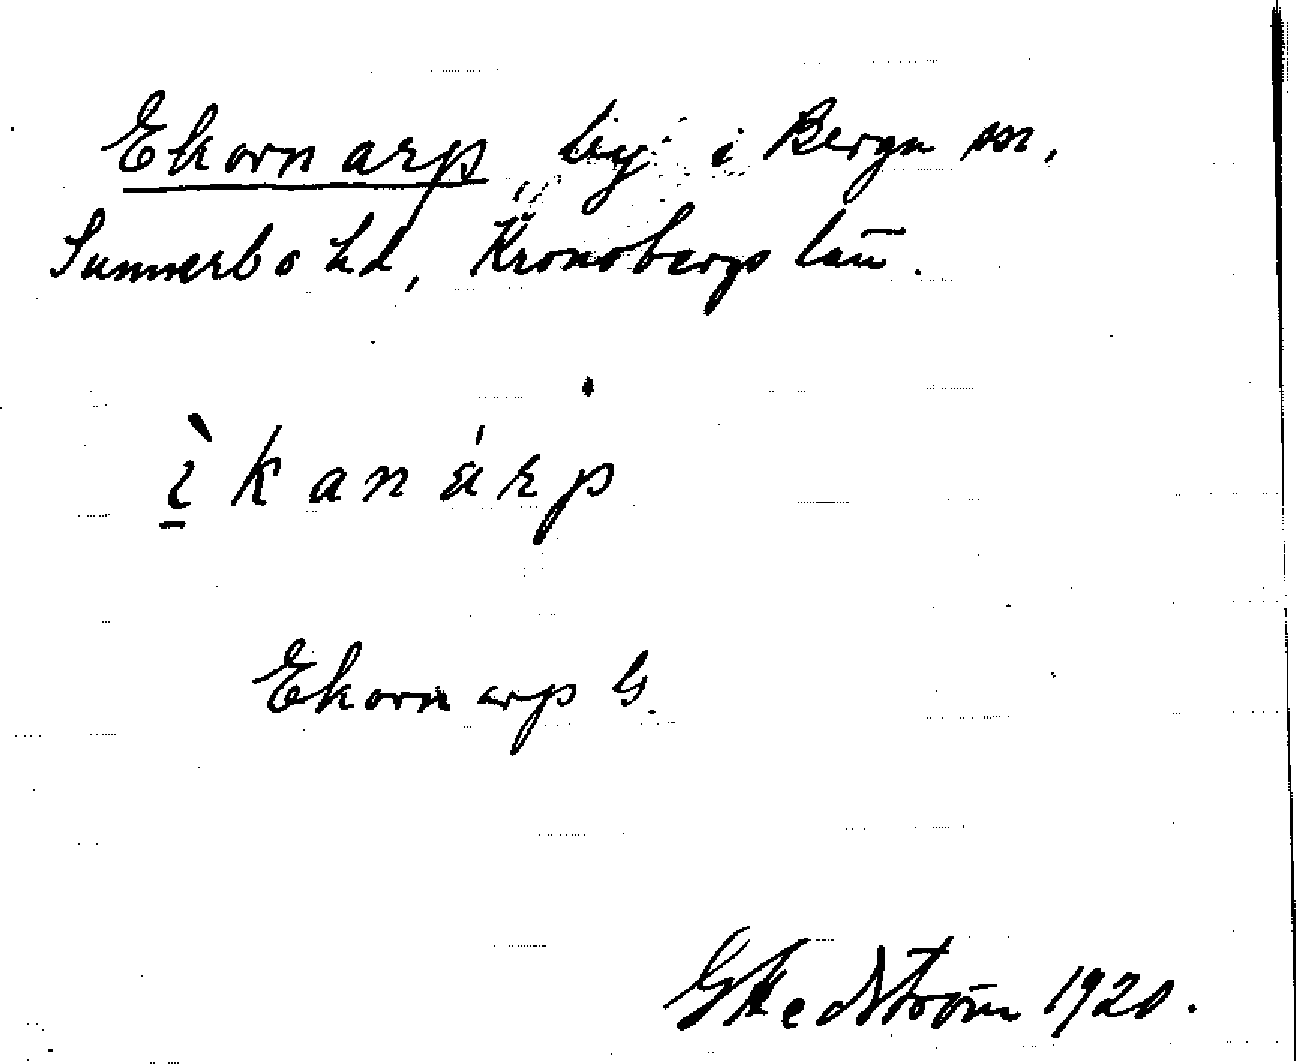 Ekornarp by i Berga sn,
Sunnerbo hd, Kronobergs län.
ìkanárp
Ekornarp G.
G Hedström 1920.